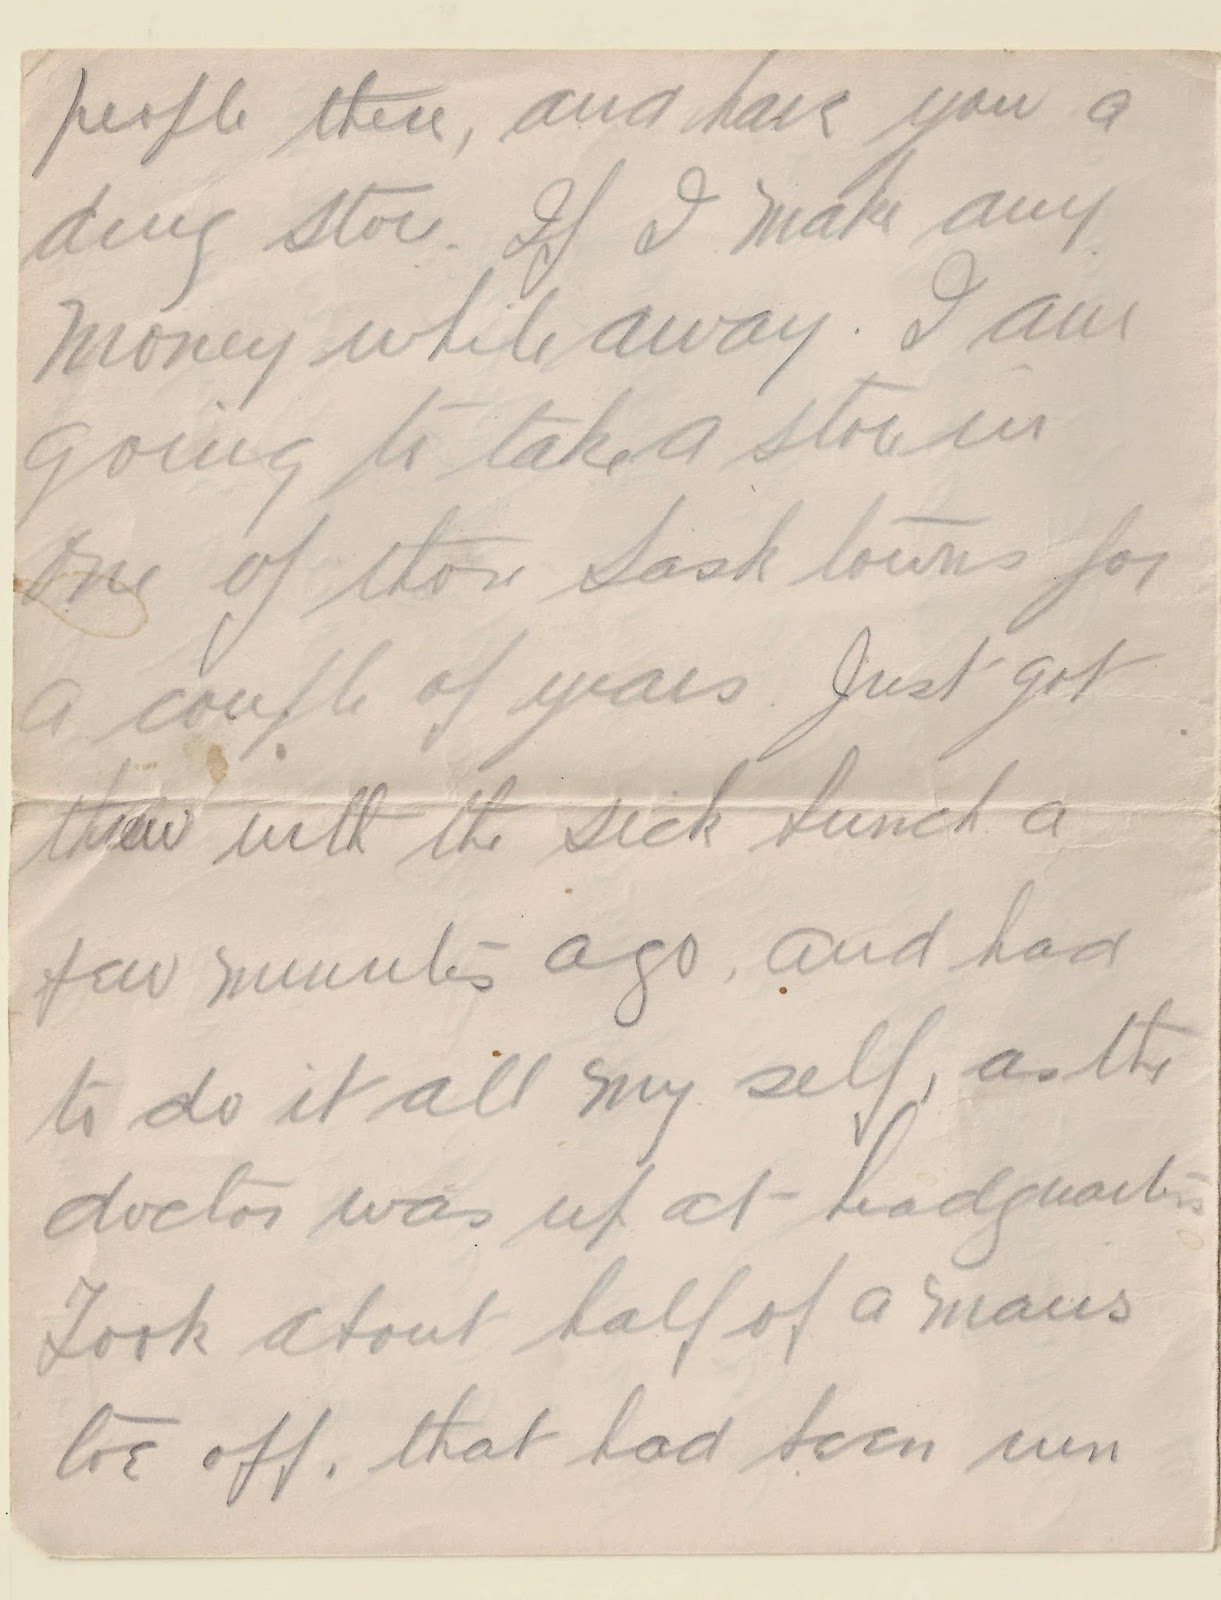 people there, and have you a
drug store. If I make any
money while away. I am
going to take a store in
one of those Sask towns for
a couple of years. Just got
thru with the sick bunch a
few minutes ago, and had
to do it all my self, as the
doctor was up at headquarters
Took about half of a mans
toe off, that had been run